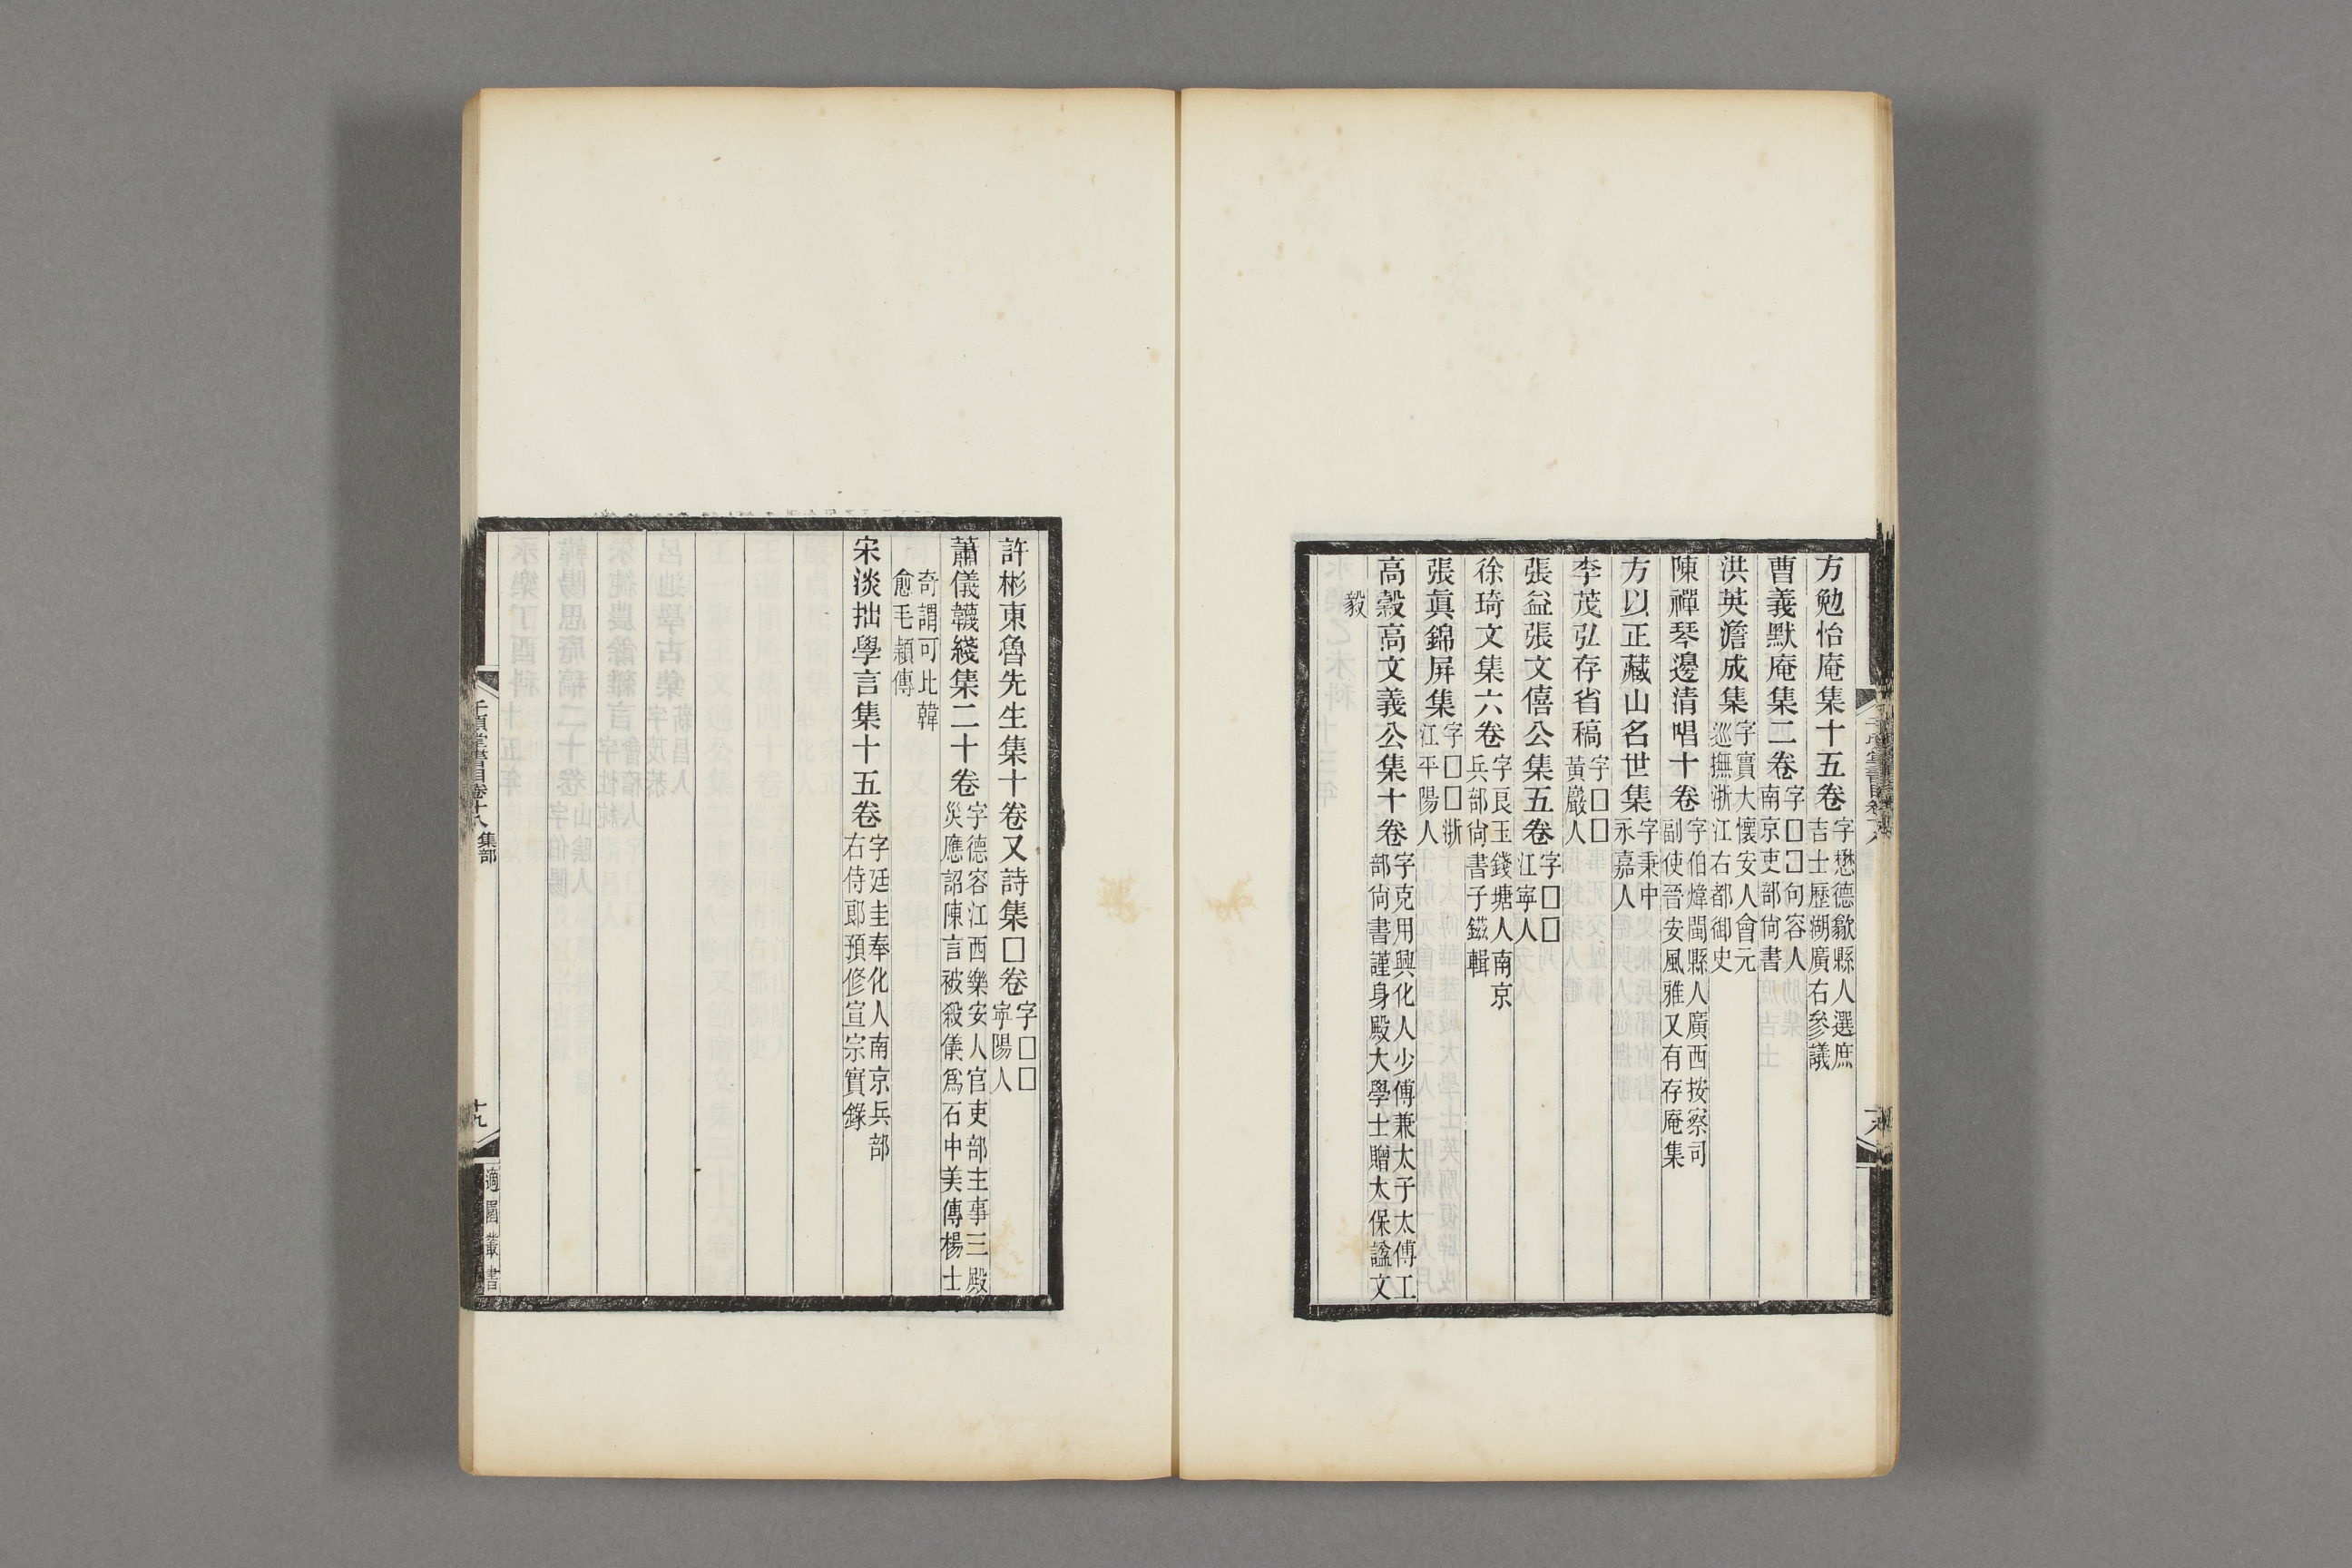 方勉怡庵集十五卷字懋德歙縣人選庶吉士歷湖廣右參議
曹義默庵集二卷字□□句容人南京吏部尙書
洪英澹成集字實大懷安人會元巡撫浙江右都御史
陳禪琴邊清唱十卷字伯煒閩縣人廣西按察司副使晉安風雅又有存庵集
方以正藏山名世集字秉中永嘉人
李茂弘存省稿字□□黃巖人
張益張文僖公集五卷字□□江寧人
徐琦文集六卷字良玉錢塘人南京兵部尙書子鎡輯
張眞錦屏集字□□浙江平陽人
高穀高文義公集十卷字克用興化人少傅兼太子太傅工部尙書謹身殿大學士贈太保諡文
毅
許彬東魯先生集十卷又詩集□卷字□□寧陽人
蕭儀韤綫集二十卷字德容江西樂安人官吏部主事三殿災應詔陳言被殺儀爲石中美傳楊士
奇謂可比韓愈毛穎傳
宋淡拙學言集十五卷字廷圭奉化人南京兵部右侍郞預修宣宗實錄
千頃堂書目卷十八 集部
十九
適園叢書